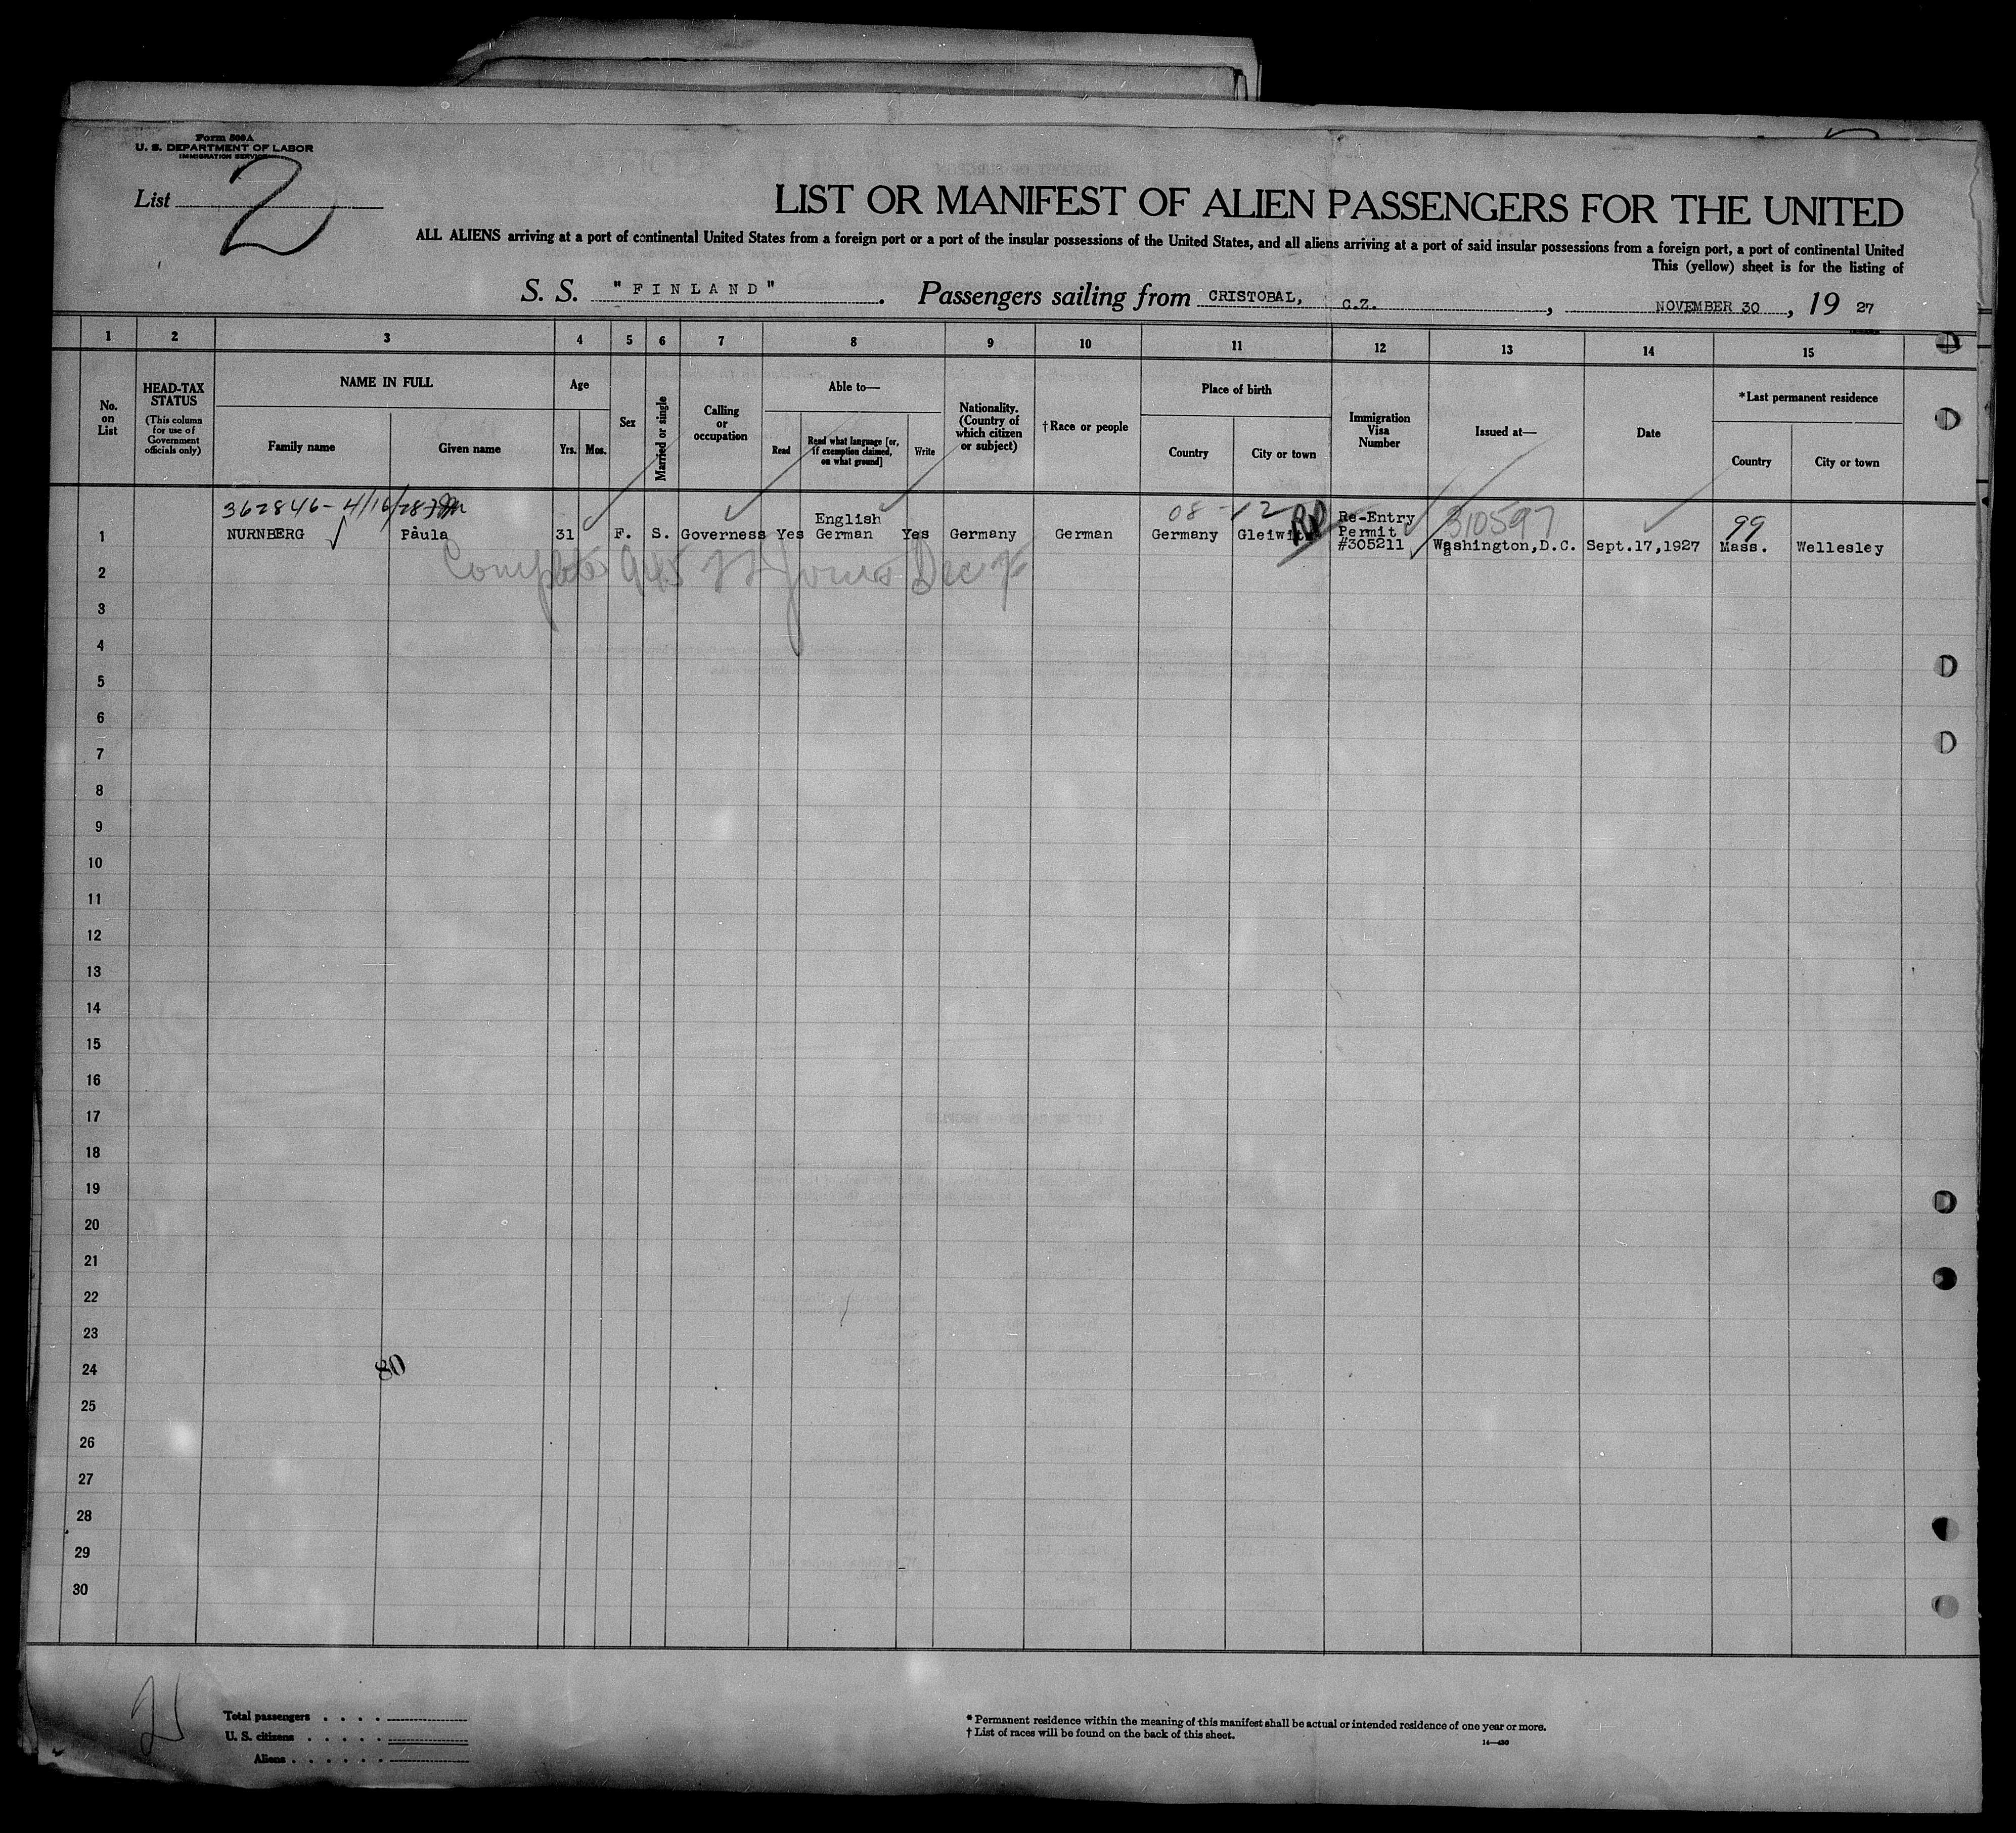 Form 500A
U. S. DEPARTMENT OF LABOR
IMMIGRATION SERVICE
List 2
LIST OR MANIFEST OF ALIEN PASSENGERS FOR THE UNITED
ALL ALIENS arriving at a port of continental United States from a foreign port or a port of the insular possessions of the United States, and all aliens arriving at a port of said insular possessions from a foreign port, a port of continental United
This (yellow) sheet is for the listing of
S. S. "FINLAND". Passengers sailing from CRISTOBAL, C.Z., NOVEMBER 30, 19 27
1 2 3 4 5 6 7 8 9 10 11 12 13 14 15
No. on List
HEAD-TAX STATUS
(This column for use of Government officials only)
NAME IN FULL
Family name
Given name
Age
Yrs. Mos.
Sex
Married or single
Calling or occupation
Able to—
Read
Read what language [or, if exemption claimed, on what ground]
Write
Nationality. (Country of which citizen or subject)
†Race or people
Place of birth
Country
City or town
Immigration Visa Number
Issued at—
Date
*Last permanent residence
Country
City or town
362846-4/16/28
08-12
310597
99
1 NURNBERG Paula 31 F. S. Governess Yes English German Yes Germany German Germany Re-Entry Permit #305211 Washington,D.C. Sept.17,1927 Mass. Wellesley
2
3
4
5
6
7
8
9
10
11
12
13
14
15
16
17
18
19
20
21
22
23
24
80
25
26
27
28
29
30
Total passengers
U. S. citizens
Aliens
* Permanent residence within the meaning of this manifest shall be actual or intended residence of one year or more.
† List of races will be found on the back of this sheet.
14—430